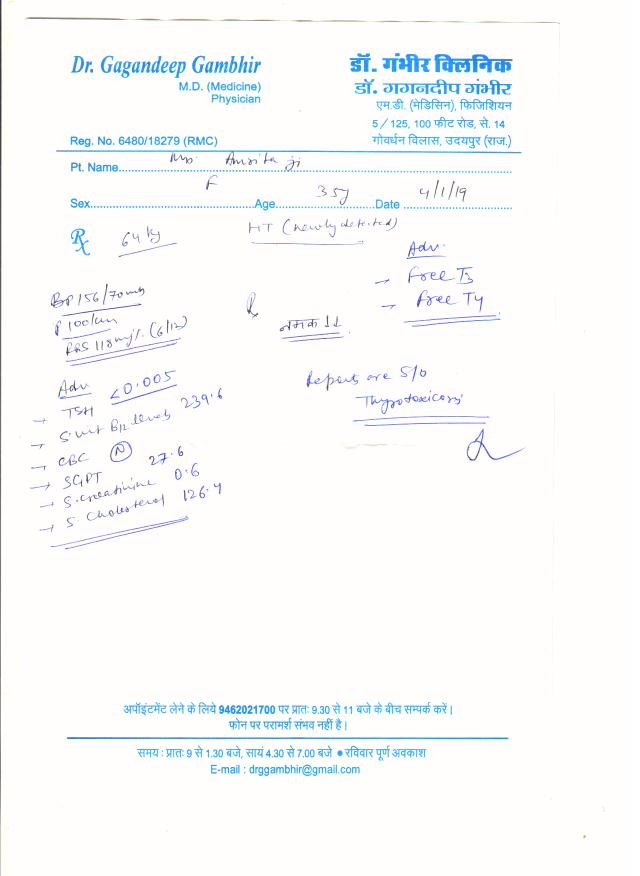 Dr. Gagandeep Gambhir
M.D. (Medicine)
Physician
Reg. No. 6480/18279 (RMC)
डॉ. गंभीर क्लिनिक
डॉ. गगनदीप गंभीर
एम.डी. (मेडिसिन), फिजिशियन
5 / 125, 100 फीट रोड, से. 14
गोवर्धन विलास, उदयपुर (राज.)
Pt. Name Mrs. Amrita ji
Sex F Age 35y Date 4/1/19
Rx 64 kg HT (newly detected)
Adv.
→ Free T3
→ Free T4
BP 156/70
P 100/min
RBS 118mg%. (6/12)
Rx
नमक ↓↓
Adv
→ TSH <0.005
→ S. Vit B12 levels 239.6
→ CBC (N)
→ SGPT 27.6
→ S. Creatinine 0.6
→ S. Cholesterol 126.4
Reports are S/O
Thyrotoxicosis
अपॉइंटमेंट लेने के लिये 9462021700 पर प्रातः 9.30 से 11 बजे के बीच सम्पर्क करें।
फोन पर परामर्श संभव नहीं है।
समय : प्रातः 9 से 1.30 बजे, सायं 4.30 से 7.00 बजे ● रविवार पूर्ण अवकाश
E-mail : drggambhir@gmail.com